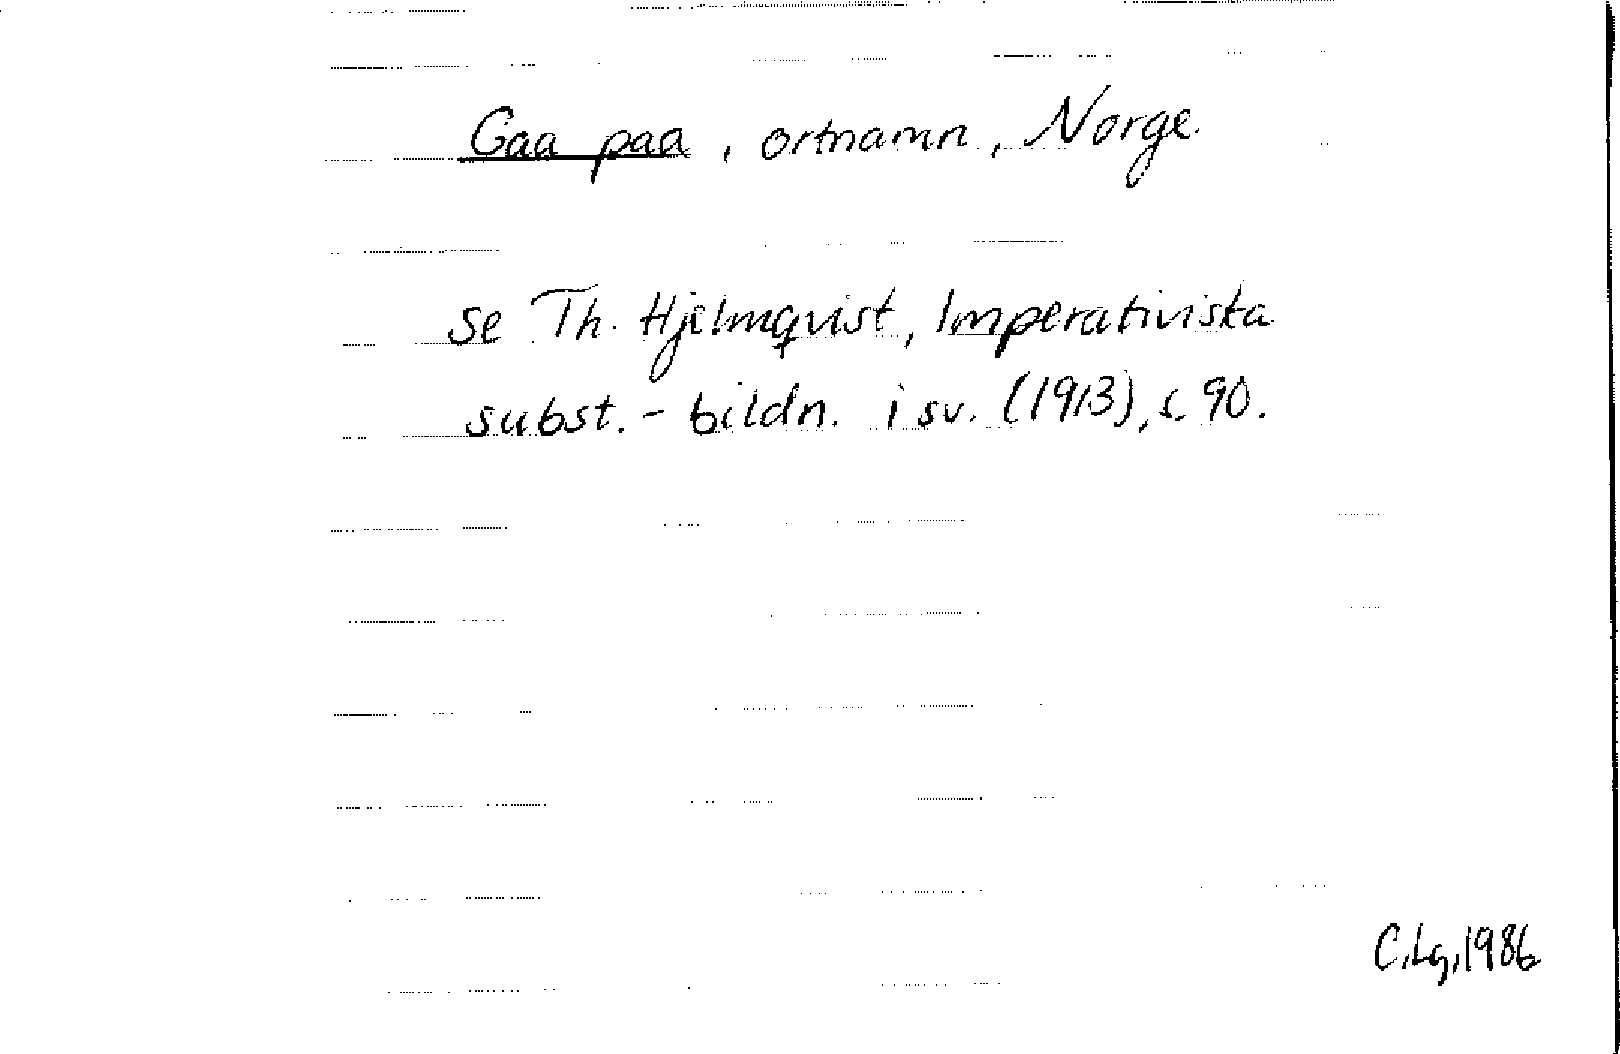 Gaa paa, ortnamn, Norge.
se Th. Hjelmqvist, Imperativiska
subst.-bildn. i sv. (1913), s. 90.
C.Lg,1986